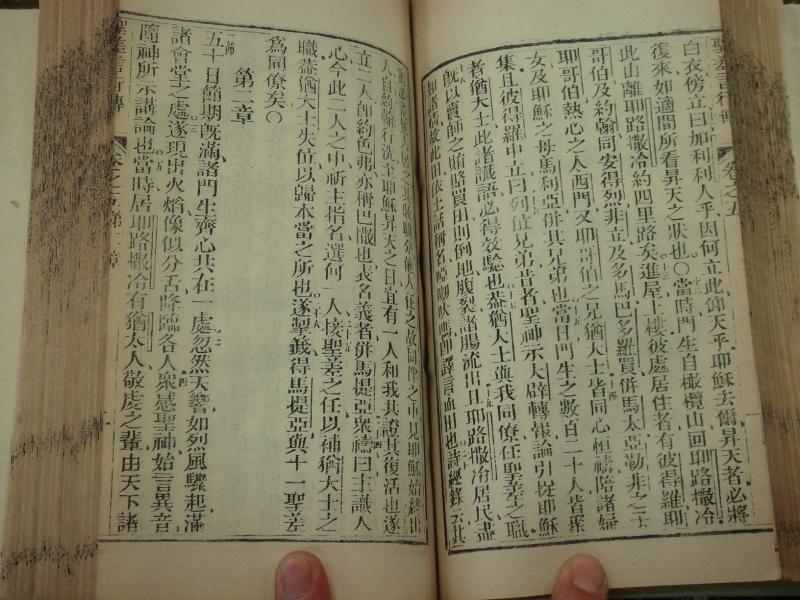 聖差言行傳 卷之五
白衣傍立曰加利利人乎因何立此仰天乎耶穌去爾昇天者必將
復來如適間所看昇天之狀也〇當時門生自橄欖山回耶路撒冷
此山離耶路撒冷約四里路矣進屋上樓彼處居住者有彼得羅耶
哥伯及約翰同安得烈非立及多馬巴多羅買併馬太亞勒非之子
耶哥伯熱心之人西門又耶哥伯之兄猶大士皆同心恒禱陪諸婦
女及耶穌之母馬利亞併其兄弟也當日門生之數百二十人皆聚
集且彼得羅中立曰列位兄弟昔者聖神示大辟轉報論引捉耶穌
者猶大士此者讖語必得效驗也蓋猶大士與我同僚任聖差之職
既以賣師之賄賂買田則倒地腹裂諸腸流出且耶路撒冷居民盡
知
故此田依土話稱名
即譯言血田也詩經錄云其
人自約翰行洗至耶穌昇天之日宜有一人和我共證其復活也遂
立二人卽約色弗亦稱巴撒也表名義者併馬提亞衆禱曰主識人
心今此二人之中祈主指名選何一人接聖差之任以補猶大士之
職蓋猶大士失位以歸本當之所也遂掣籤得馬提亞與十一聖差
爲同僚矣〇
第二章
五十日節期旣滿諸門生齊心共在一處忽然天響如烈風驟起滿
諸會堂之處遂現出火焰像似分舌降臨各人衆感聖神始言異音
隨神所示講論也當時居耶路撒冷有猶太人敬虔之輩由天下諸
聖差言行傳 卷之五第二章